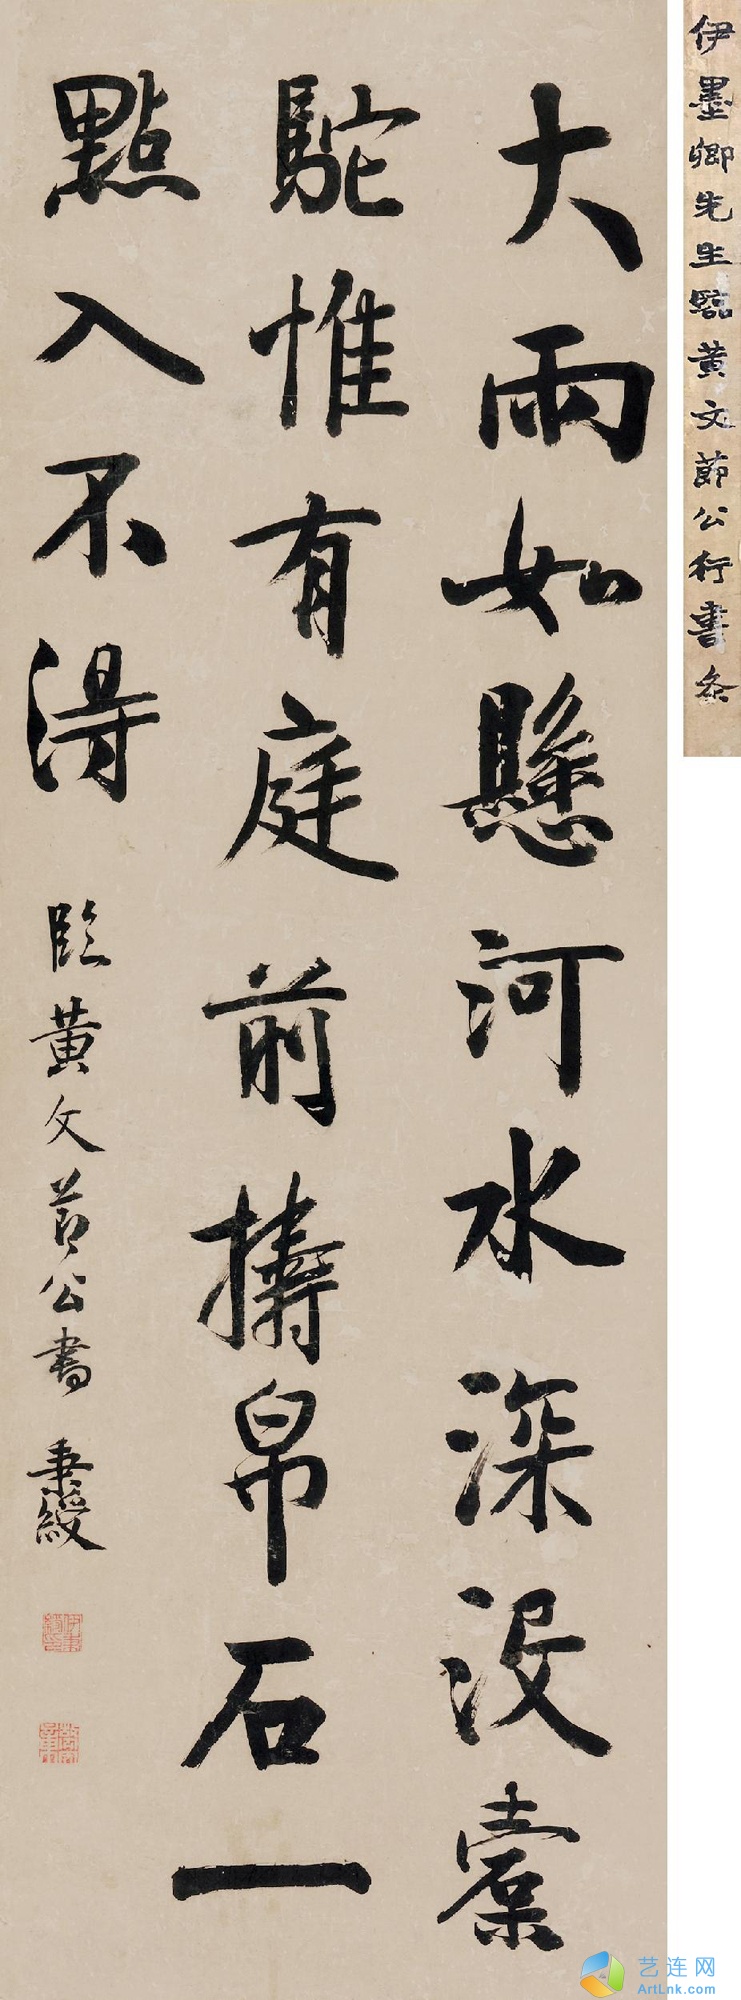 伊墨卿先生臨黃文節公行書条
大雨如懸河水深沒橐
駝惟有庭前擣帛石一
點入不得
臨黃文節公書 秉綬
艺连网
ArtLnk.com